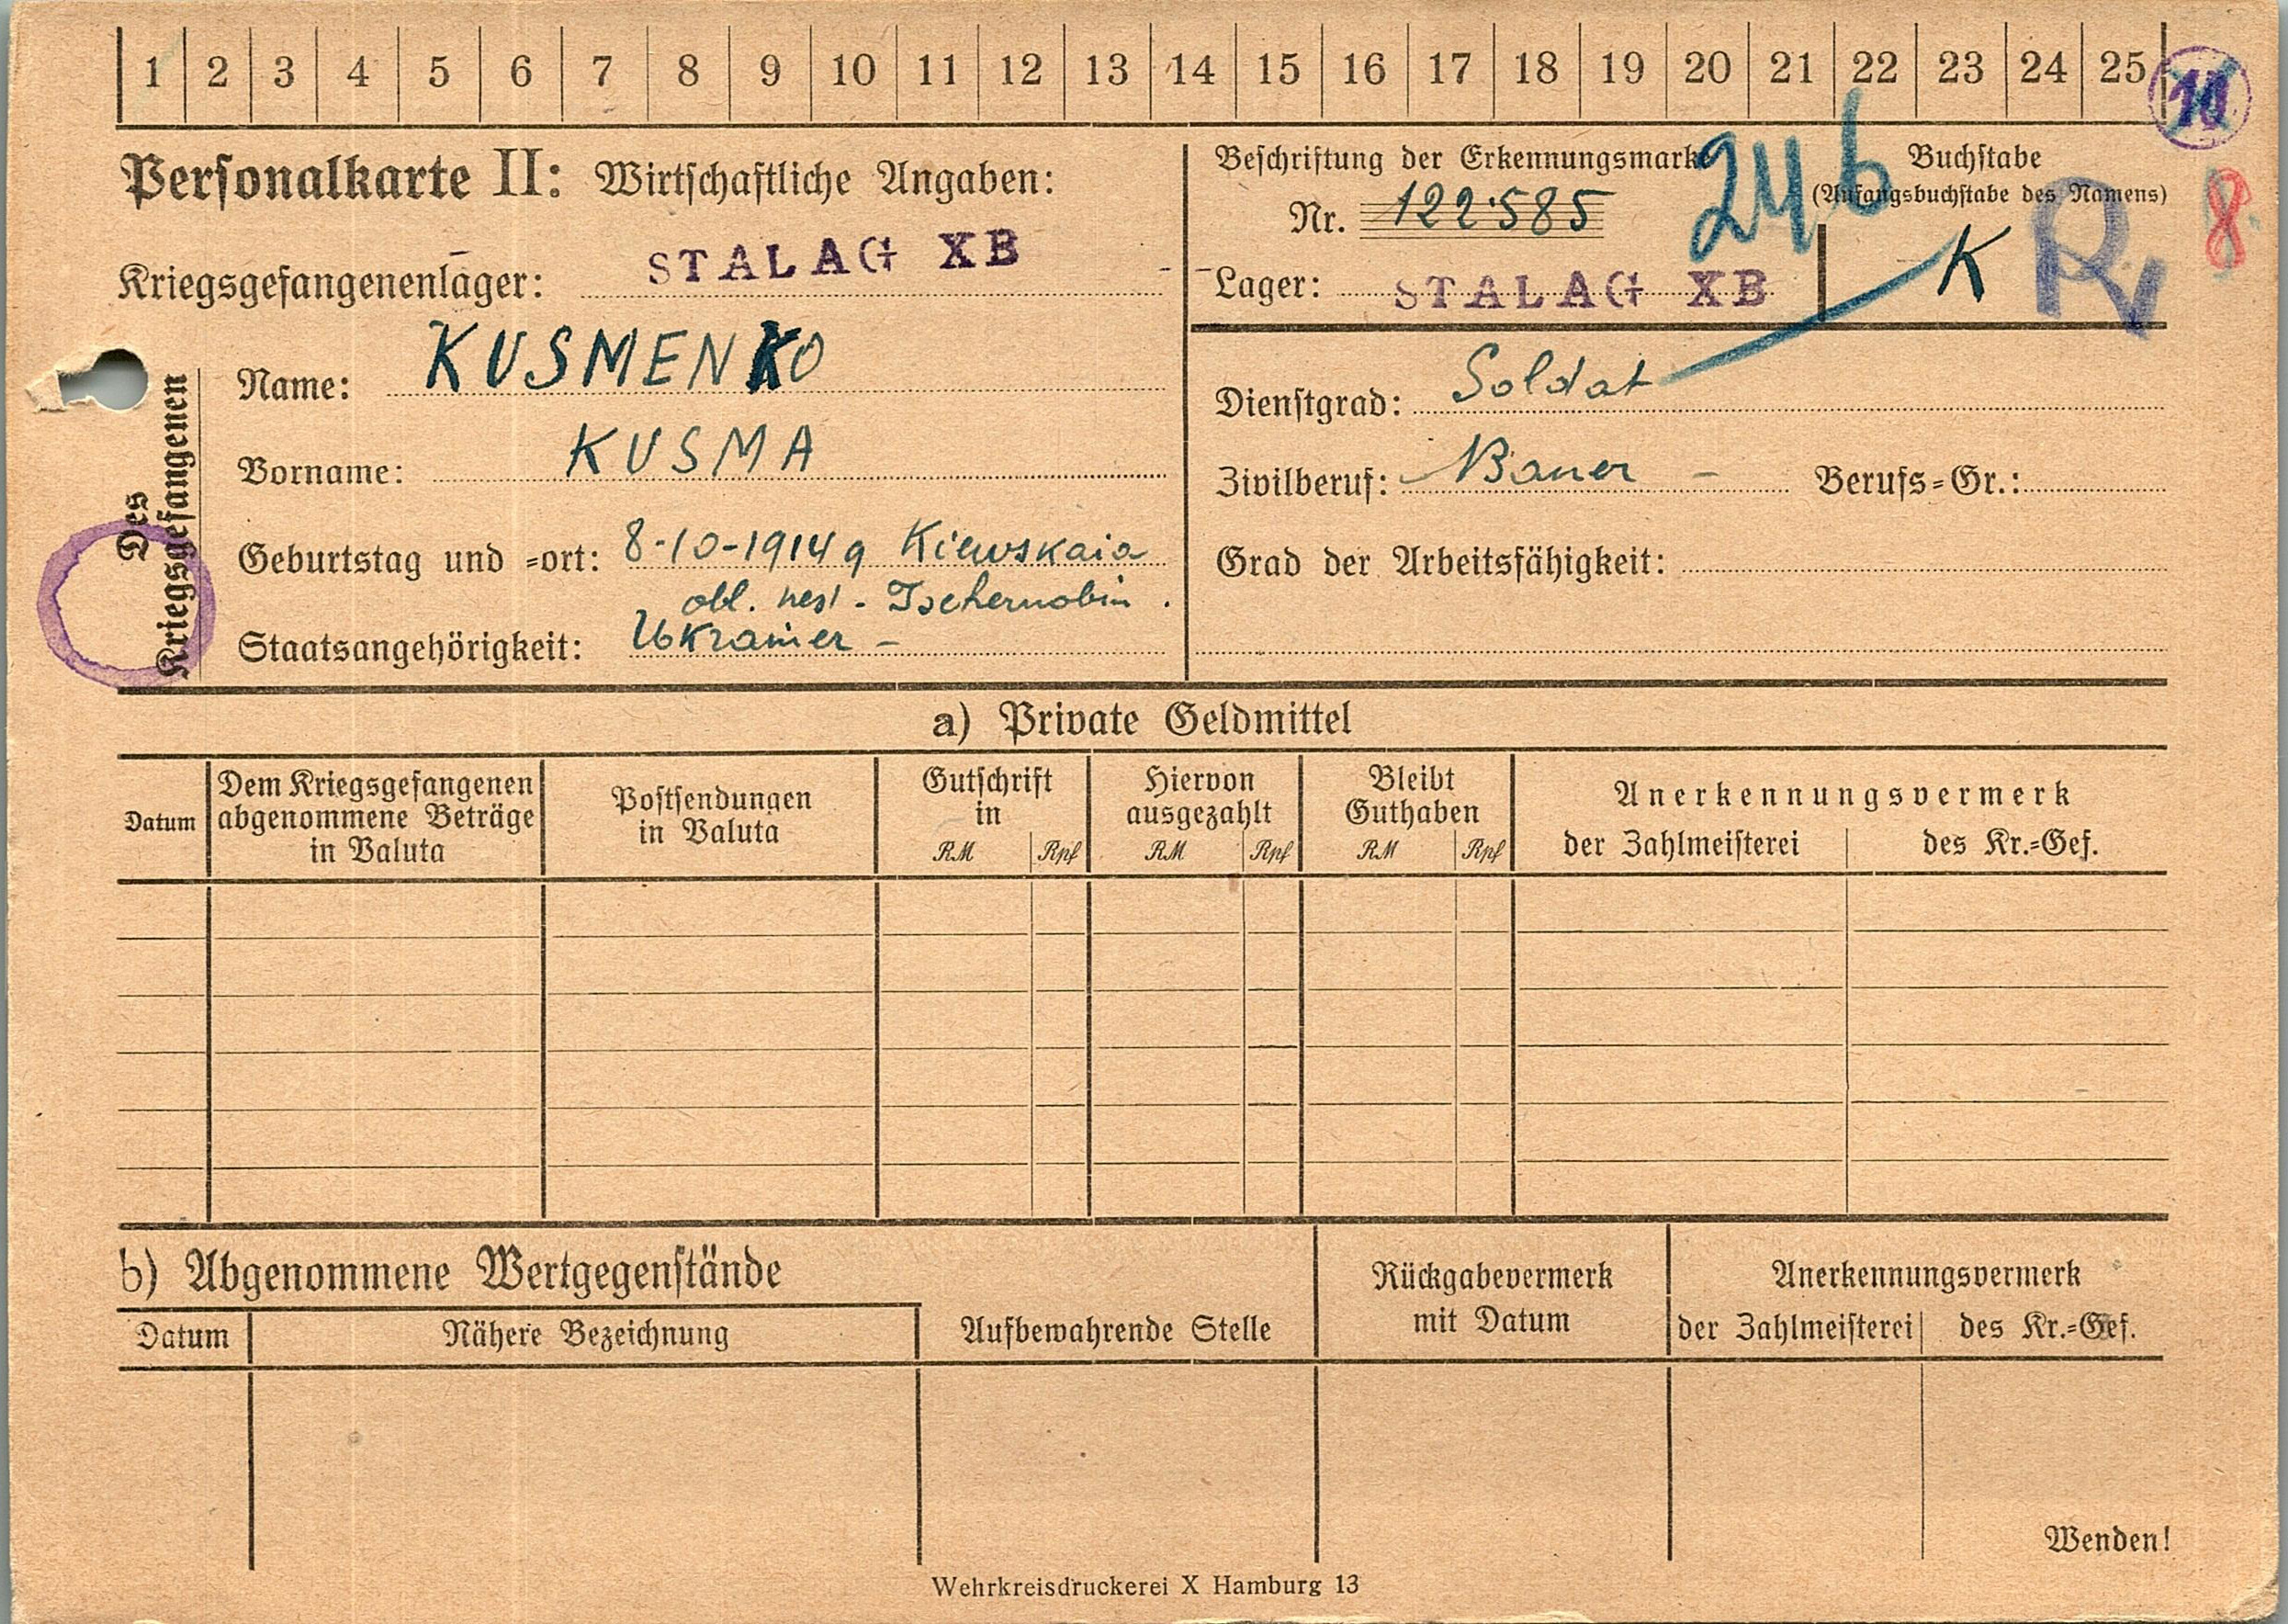 1 2 3 4 5 6 7 8 9 10 11 12 13 14 15 16 17 18 19 20 21 22 23 24 25
Personalkarte II: Wirtschaftliche Angaben:
Kriegsgefangenenlager: STALAG XB
Des
Kriegsgefangenen
Name: KUSMENKO
Vorname: KUSMA
Geburtstag und =ort: 8-10-1914 g Kiewskaia
obl. Tschernobin.
Staatsangehörigkeit: Ukrainer -
Beschriftung der Erkennungsmarke
Nr. 122585
Lager: STALAG XB
24b
Buchstabe
(Anfangsbuchstabe des Namens)
K
8
Dienstgrad: Soldat
Zivilberuf: Bauer - Berufs=Gr.:
Grad der Arbeitsfähigkeit:
a) Private Geldmittel
Datum
Dem Kriegsgefangenen
abgenommene Beträge
in Valuta
Postsendungen
in Valuta
Gutschrift
in
RM Rpf
Hiervon
ausgezahlt
RM Rpf
Bleibt
Guthaben
RM Rpf
Anerkennungsvermerk
der Zahlmeisterei des Kr.=Gef.
b) Abgenommene Wertgegenstände
Datum Nähere Bezeichnung
Aufbewahrende Stelle
Rückgabevermerk
mit Datum
Anerkennungsvermerk
der Zahlmeisterei des Kr.=Gef.
Wenden!
Wehrkreisdruckerei X Hamburg 13